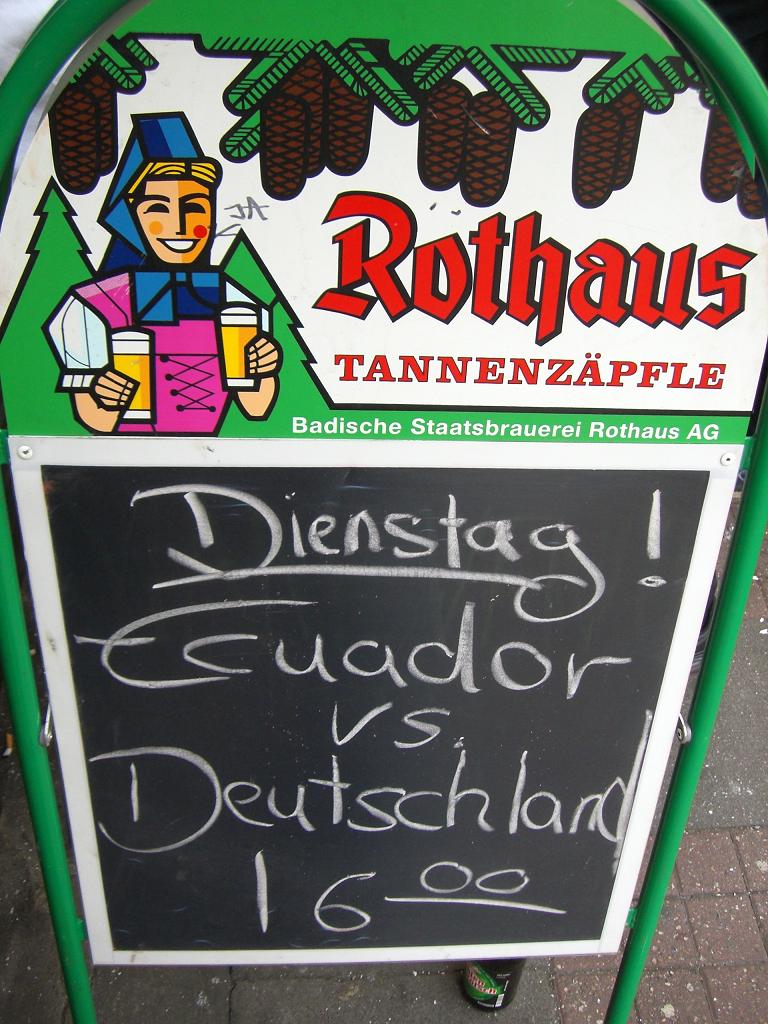 JA
Rothaus
TANNENZÄPFLE
Badische Staatsbrauerei Rothaus AG
Dienstag!
Ecuador
vs.
Deutschland
16 00